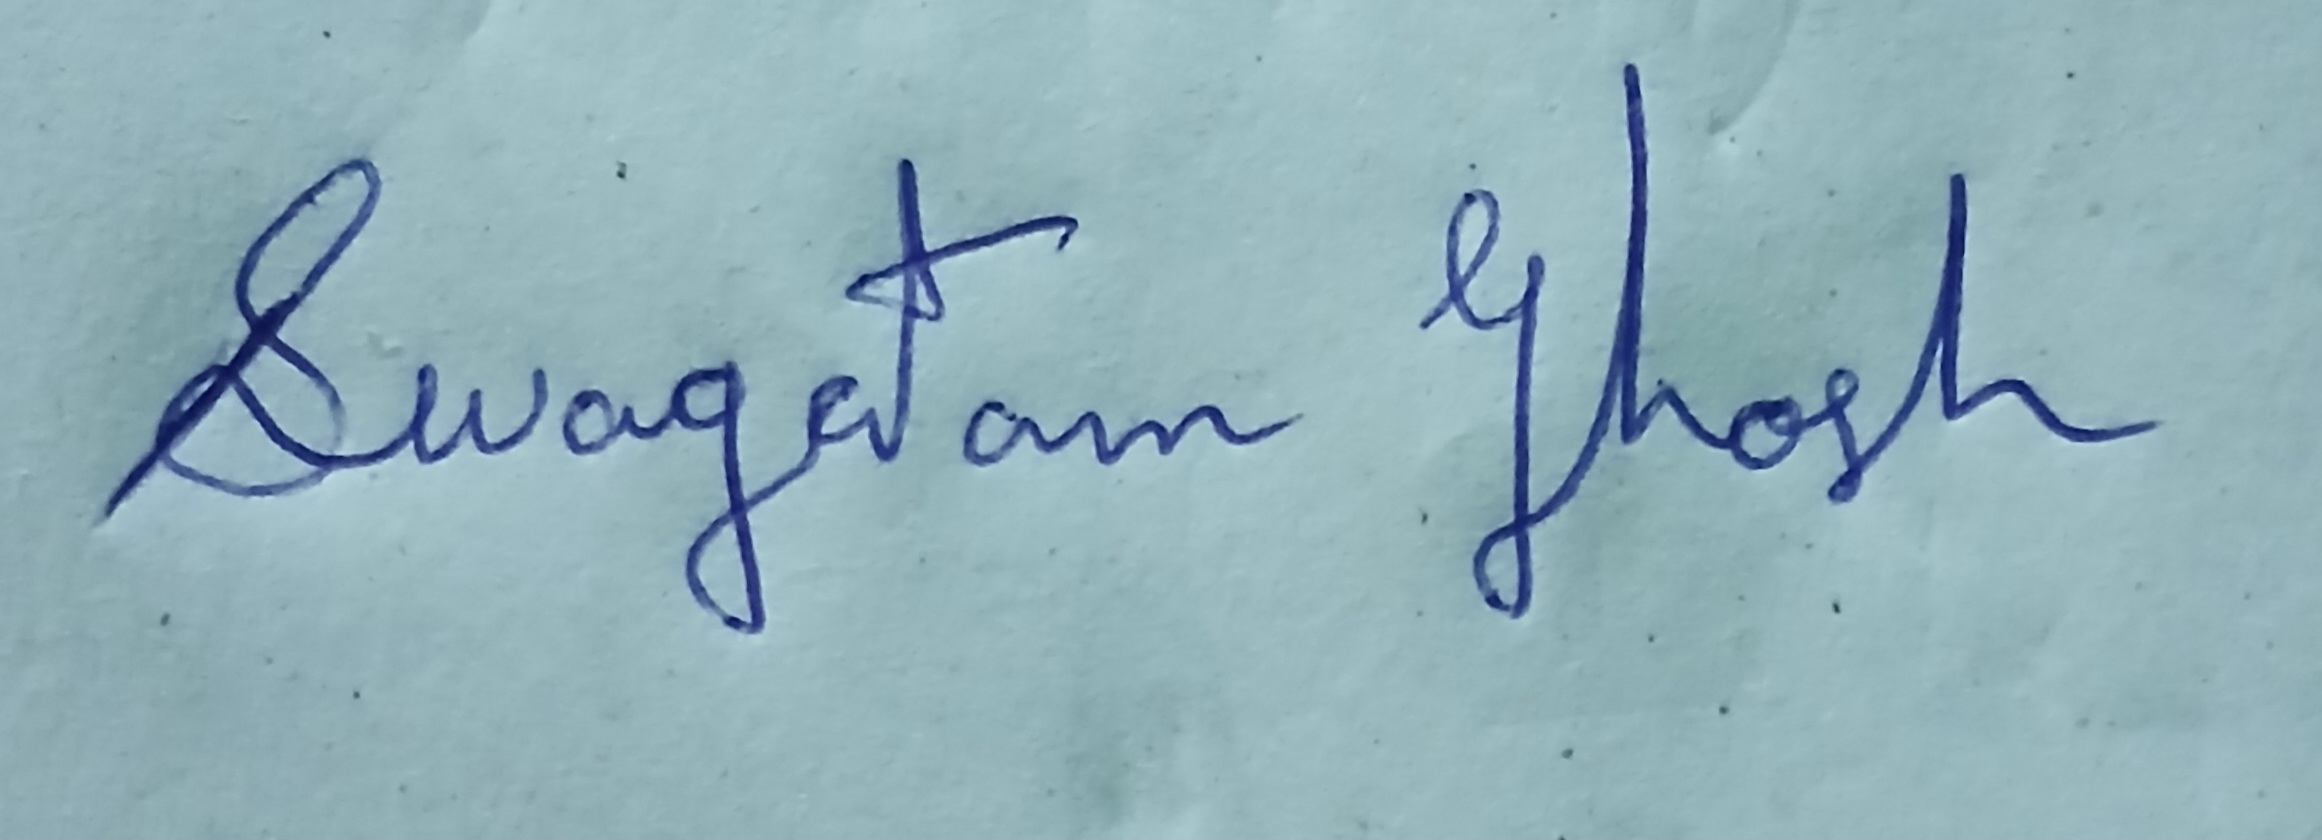 Swagatam Ghosh